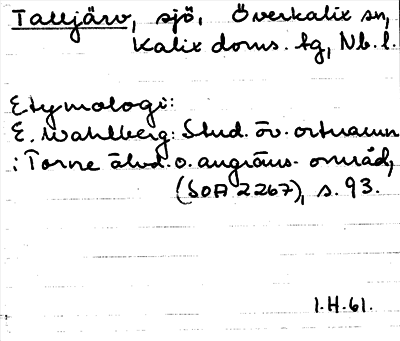 Talljärv, sjö, Överkalix sn,
Kalix doms. tg, Nb. l.
Etymologi:
E. Wahlberg: Stud. öv. ortnamn
i Torne älvd. o. angräns. områd,
(SOA 2267), s. 93.
1.H.61.